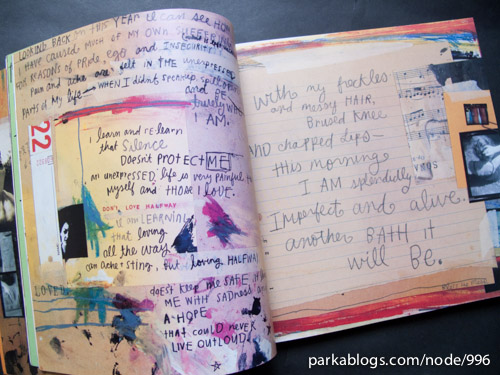 LOOKING BACK ON THIS YEAR I CAN SEE HOW
I HAVE CAUSED MUCH OF MY OWN SUFFERING
FOR REASONS OF PRIDE, EGO and INSECURITY.
Pain and ache are felt IN THE unexpressed
PARTS of MY life WHEN I didn't speak up,
and BE
I AM.
22
I learn and RE learn
that SILENCE
Doesn't PROTECT ME
an unexpressed life is very painful
myself and THOSE I LOVE.
DON'T LOVE HALFWAY
I am LEARNING
that loving
all the way
can ache & sting, But loving HALFWAY
doesn't keep me SAFE
ME WITH SADNESS and
A HOPE
THAT could never
LIVE OUTLOUD.
With my freckles
and messy HAIR,
Bruised Knee
AND chapped lips—
this morning
I AM splendidly
Imperfect and alive.
another BATH it
will Be.
parkablogs.com/node/996